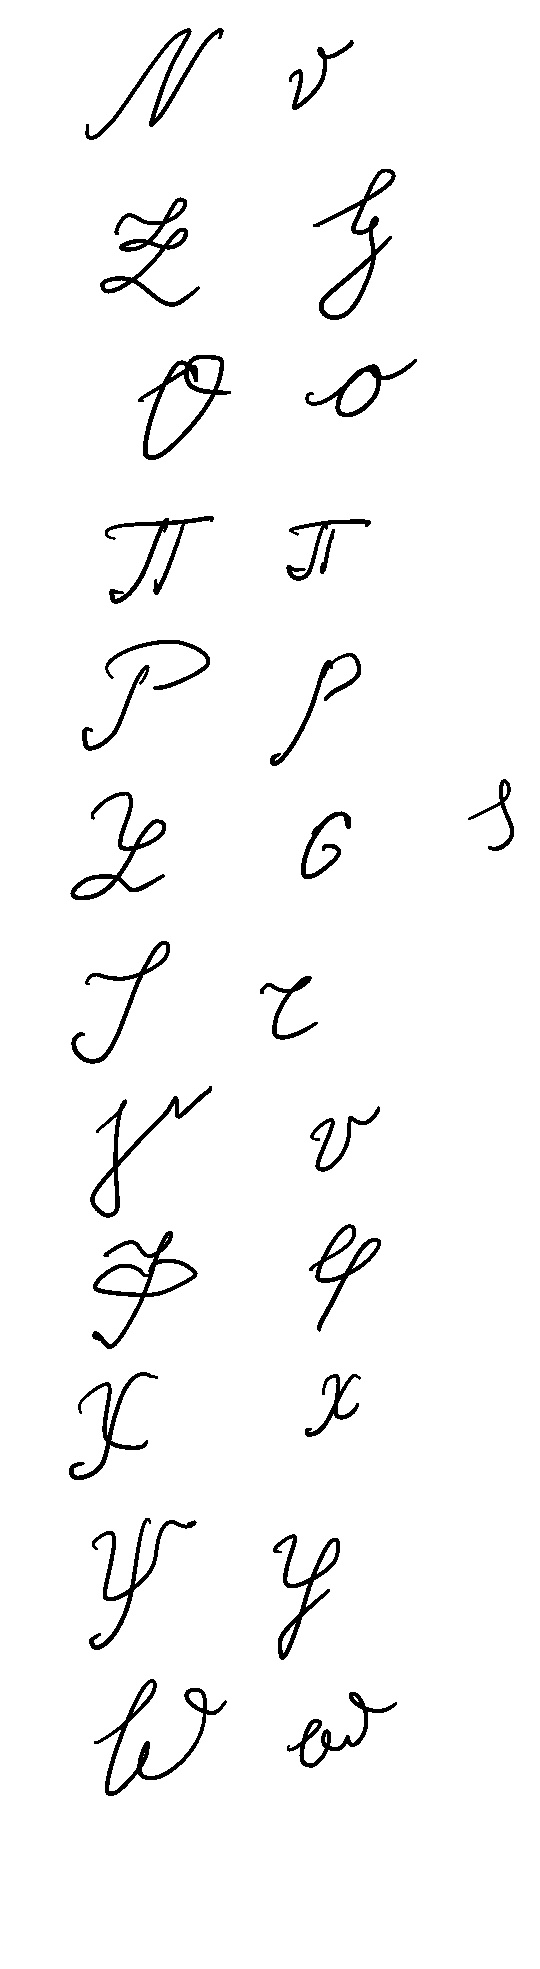 Ν ν
Ξ ξ
Ο ο
Π π
Ρ ρ
Σ σ ς
Τ τ
Υ υ
Φ φ
Χ χ
Ψ ψ
Ω ω